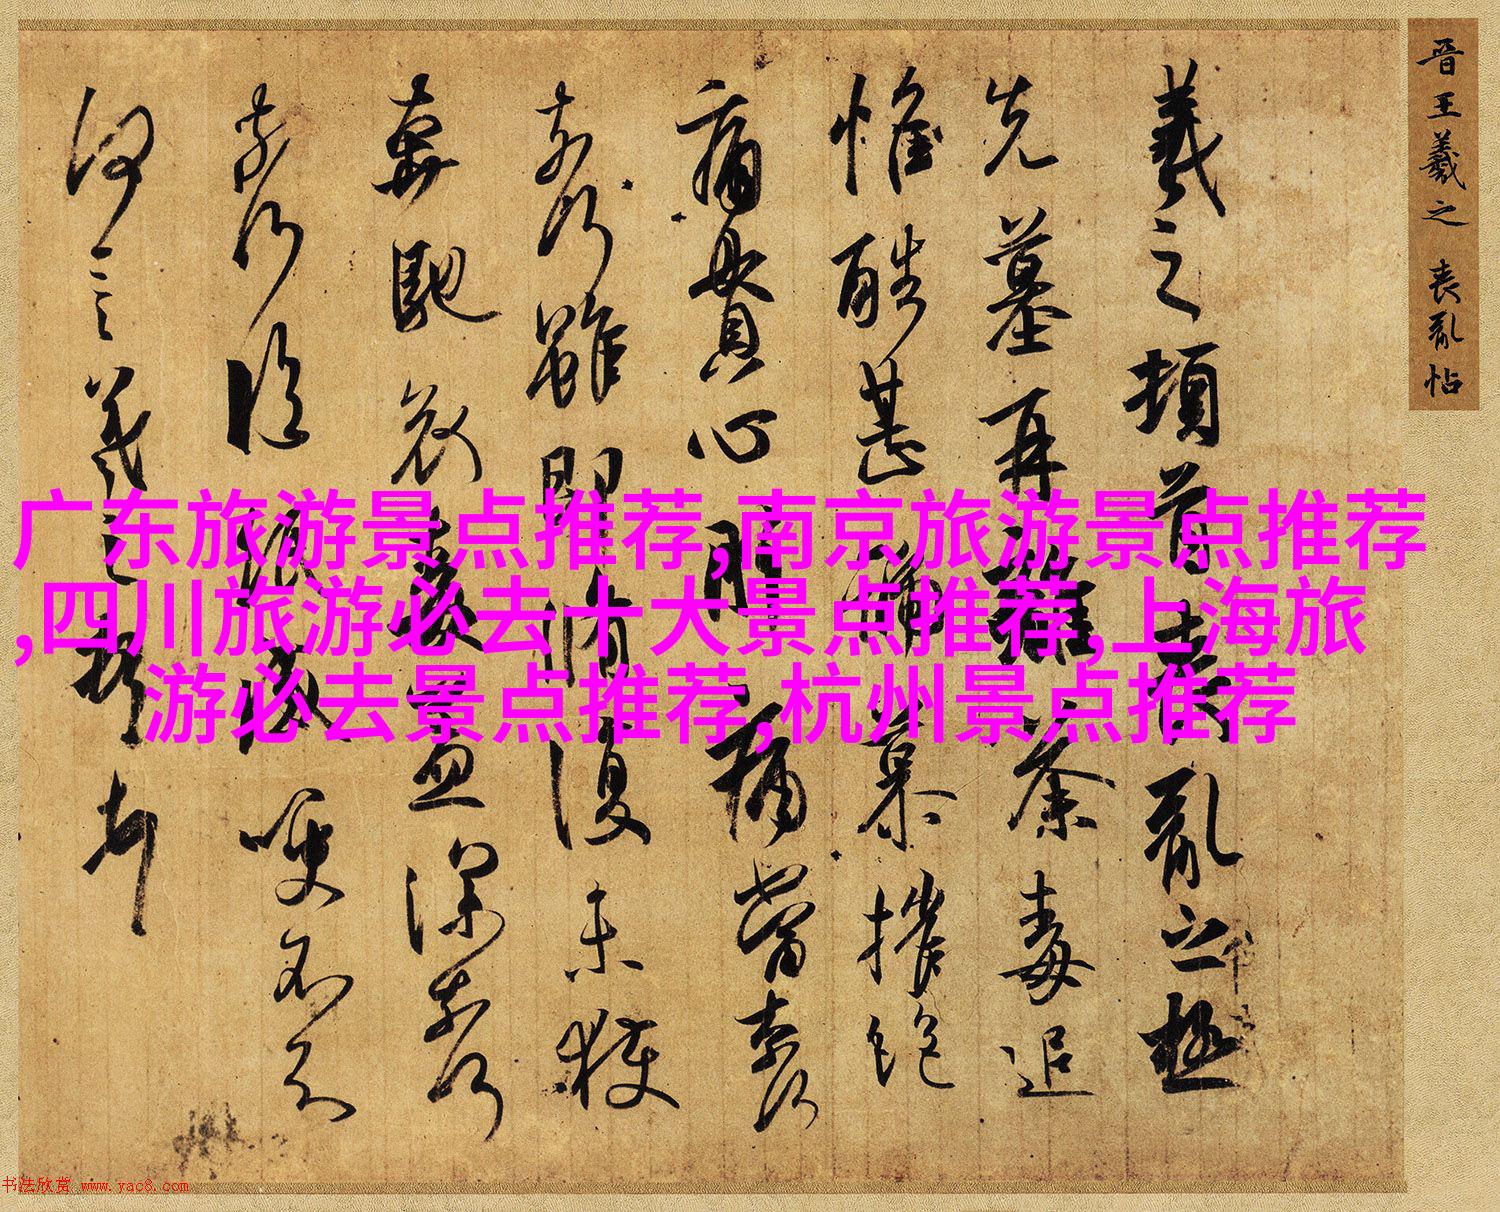 晋王羲之 丧乱帖
羲之顿首丧乱之极
先墓再离荼毒追
惟酷甚号慕摧绝
痛贯心肝痛当奈何
奈何虽即修复未获
奔驰哀毒益深奈何
奈何临纸感哽不知
何言羲之顿首
广东旅游景点推荐,南京旅游景点推荐
,四川旅游必去十大景点推荐,上海旅
游必去景点推荐,杭州景点推荐
书法欣赏 www.yac8.com